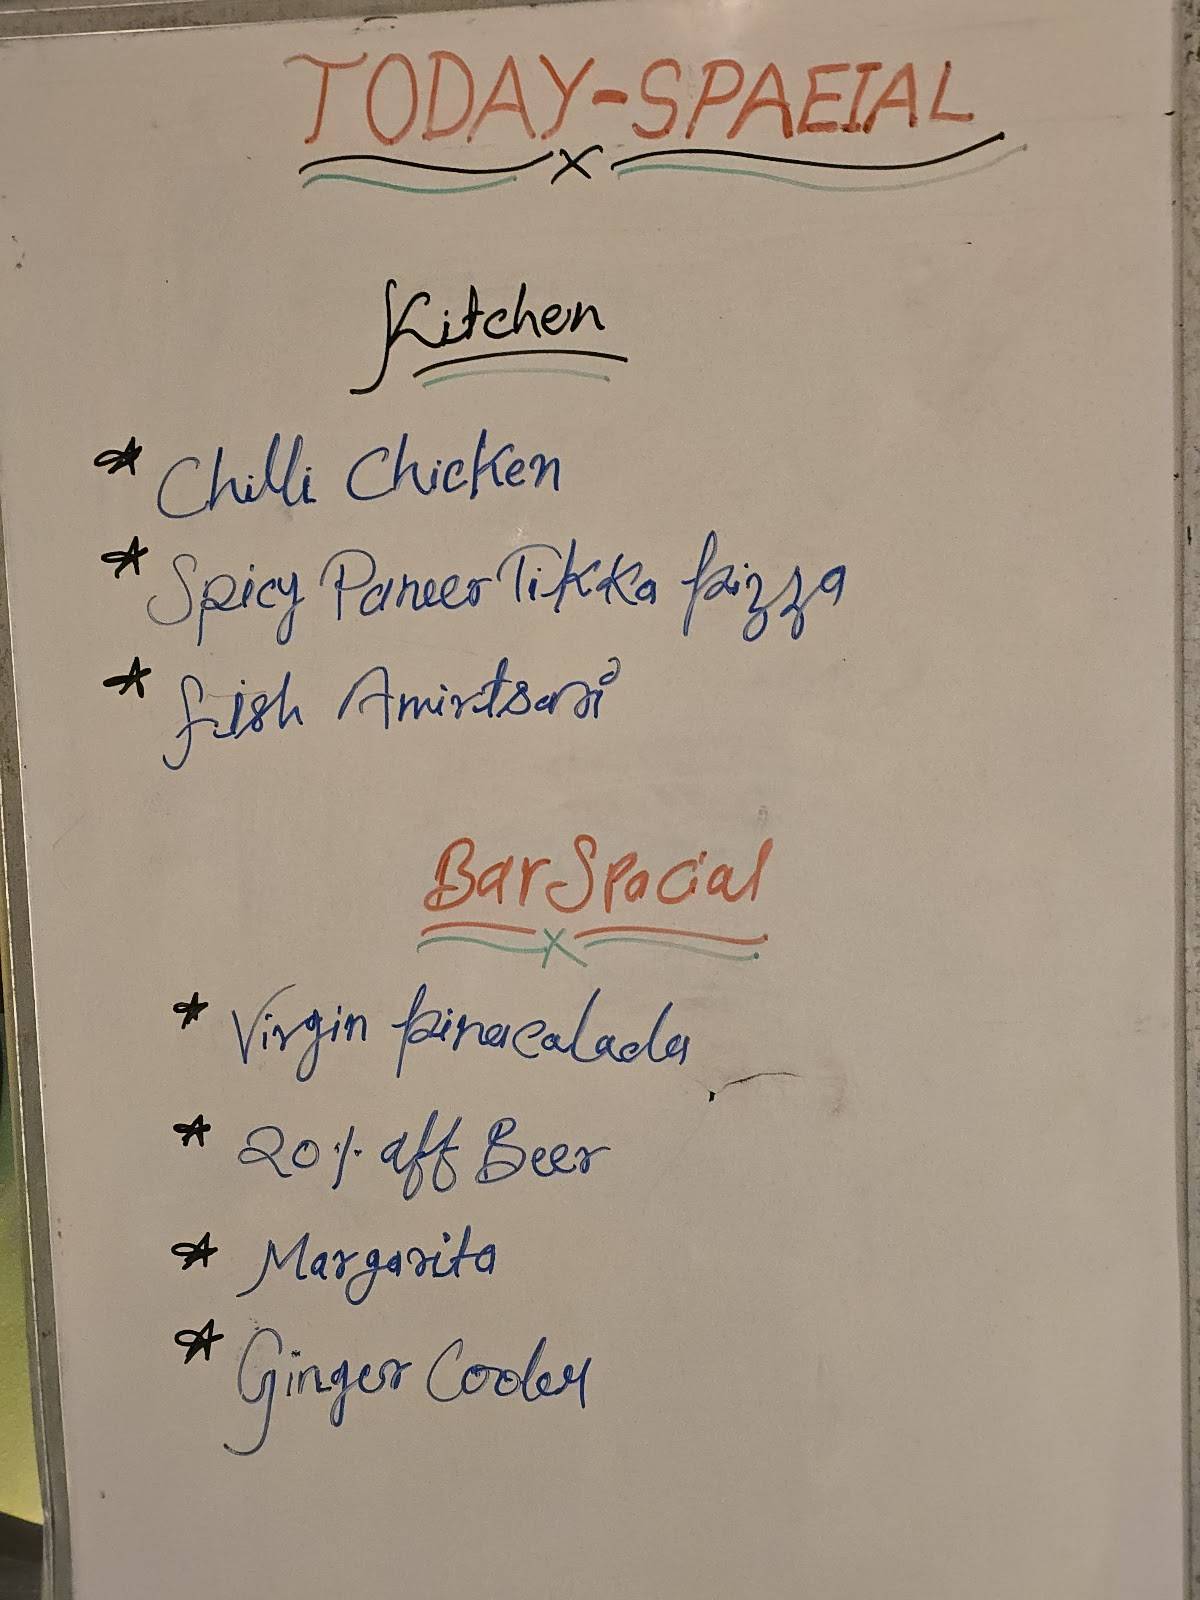 TODAY-SPAEIAL
Kitchen
* Chilli Chicken
* Spicy Paneer Tikka pizza
* fish Amirtsari
Bar Spacial
* Virgin pinacalada
* 20% off Beer
* Margarita
* Ginger Cooler